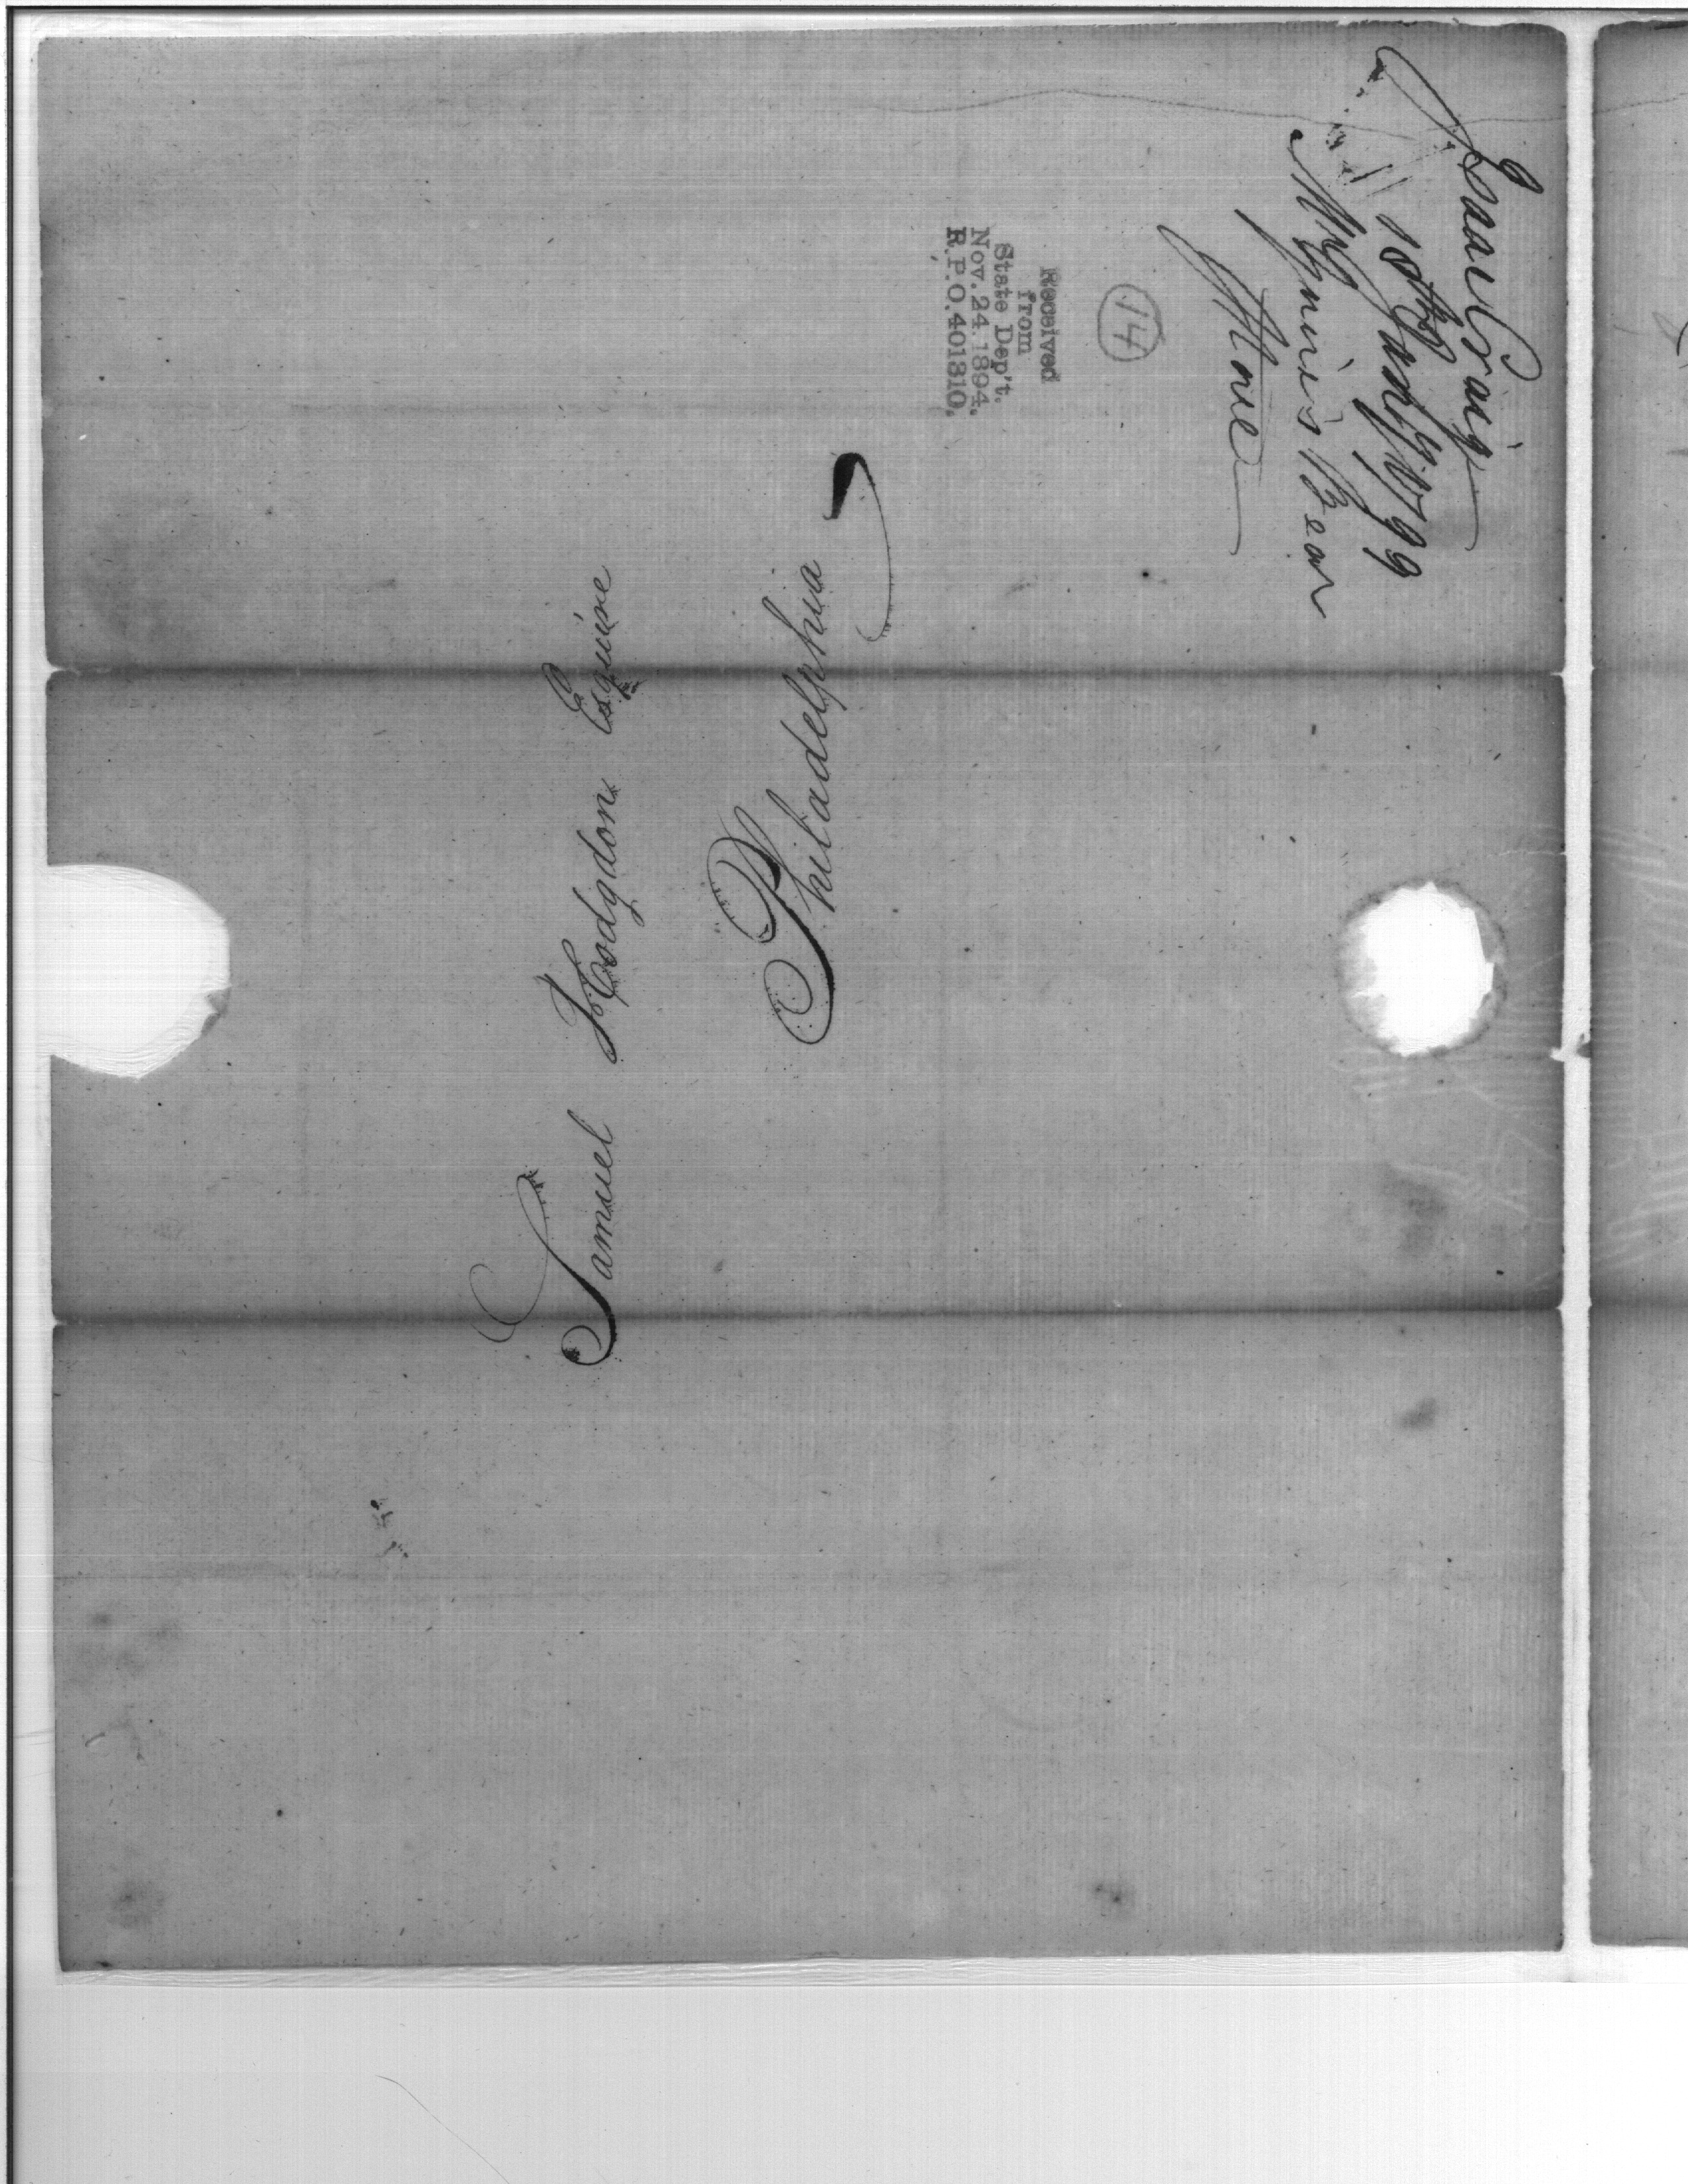 Isaac Craig
18th Jany 1799
14
Received
from
State Dep't.
Nov. 24. 1894.
R.P.O. 401310.
Samuel Hodgdon Esquire
Philadelphia